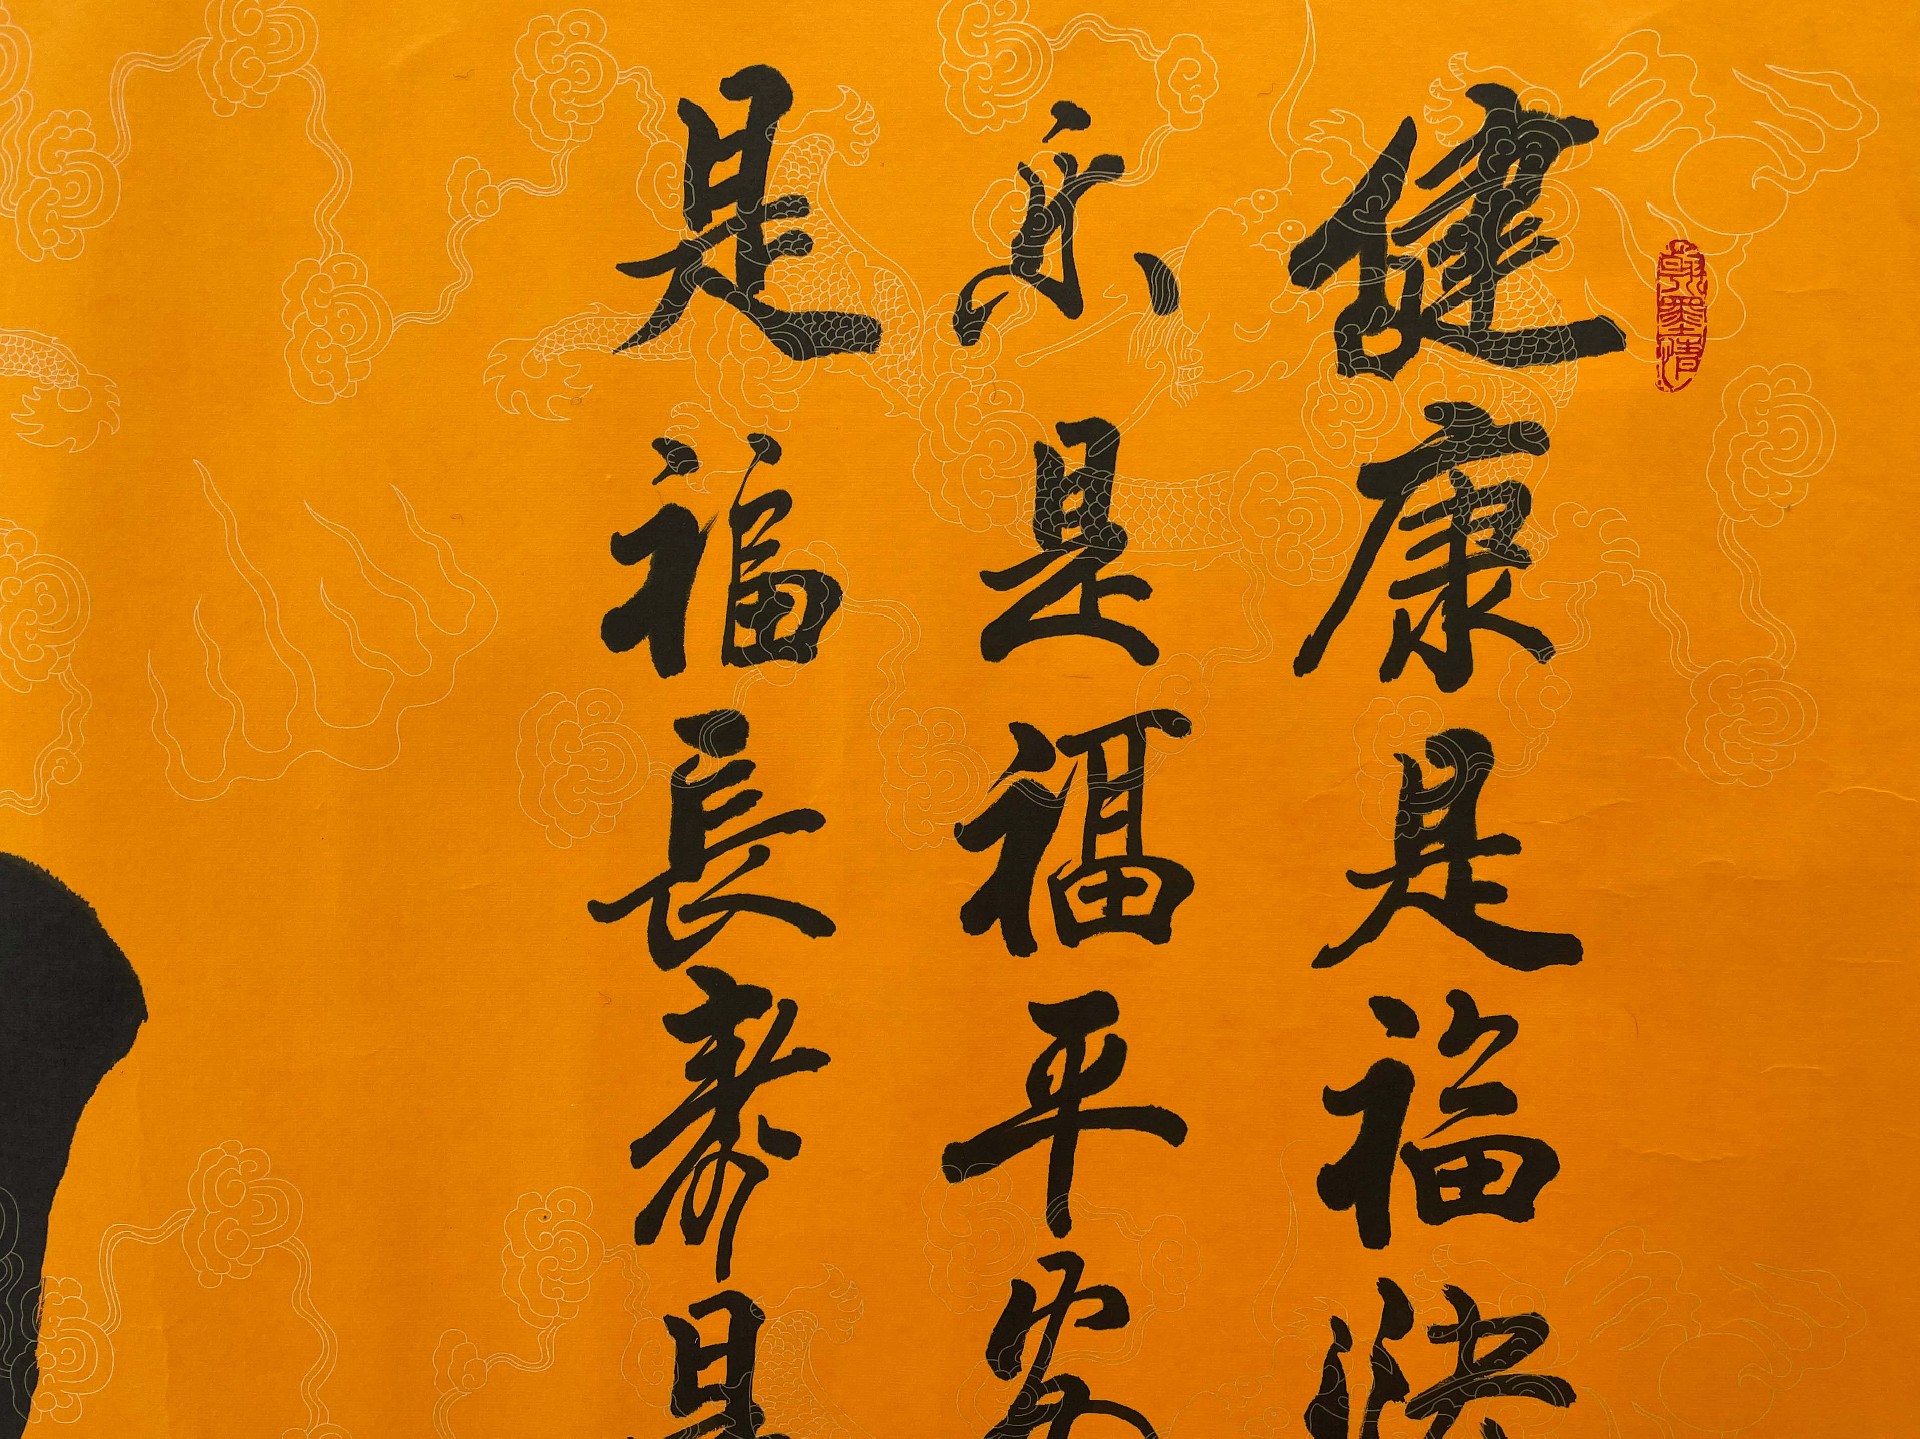 健康是福快
乐是福平安
是福長寿是